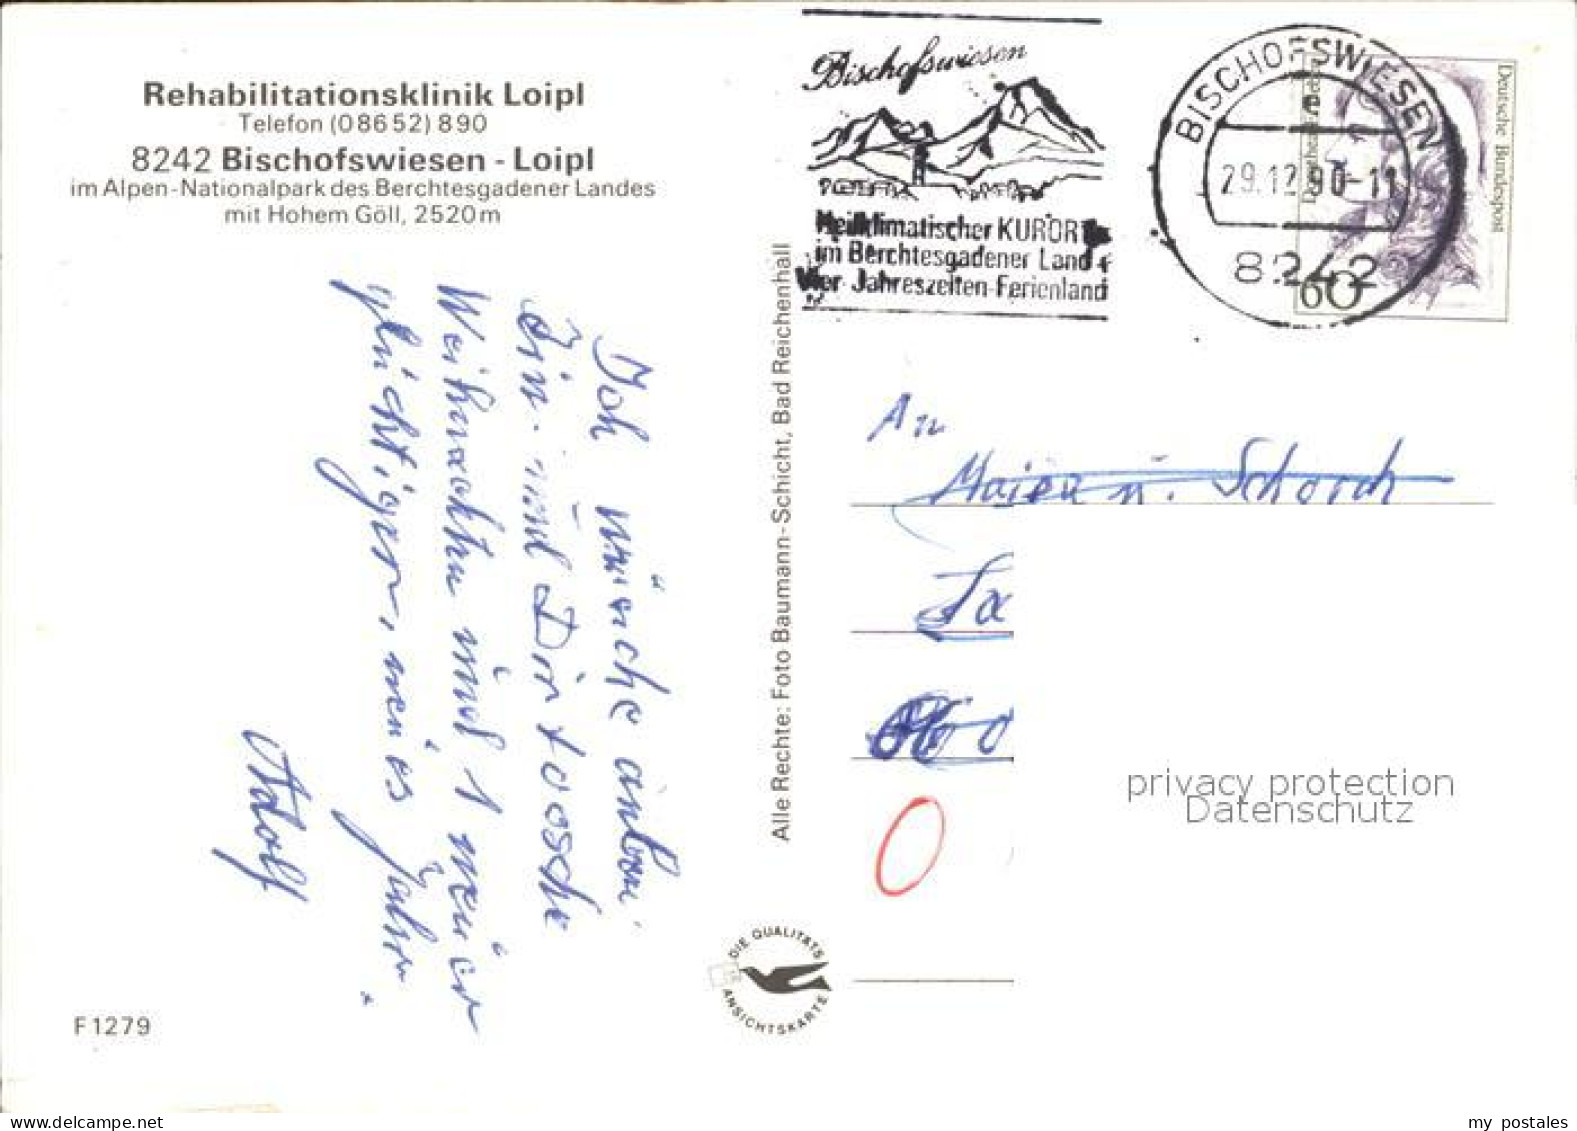 Rehabilitationsklinik Loipl
Telefon (08652) 890
8242 Bischofswiesen - Loipl
im Alpen-Nationalpark des Berchtesgadener Landes
mit Hohem Göll, 2520 m
Bischofswiesen
Heilklimatischer KURORT
im Berchtesgadener Land
Vier-Jahreszeiten-Ferienland
BISCHOFSWIESEN
e
29.12.90-11
8242
Deutsche Bundespost
60
Ich wünche
und Dir
Weihnachten und 1
Adolf
Alle Rechte: Foto Baumann-Schicht, Bad Reichenhall
An
u. Schorch
privacy protection
Datenschutz
DIE QUALITÄTS
ANSICHTSKARTE
F 1279
www.delcampe.net
my_postales